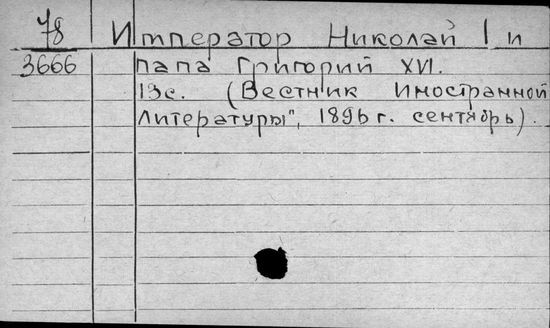 78 Император Николай I и
3666 папа Григорий XVI.
13с. (Вестник Иностранной
Литературы", 1896 г. сентябрь).